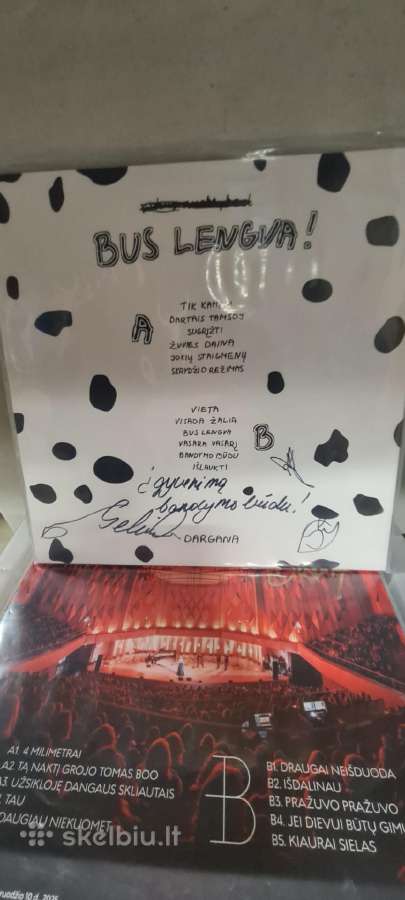 BUS LENGVA!
A
TIK
DARTAIS TAMSOJ
SUGRĮŽTI
ŽUVIES DAINA
JOKIŲ STAIGMENŲ
SKRYDŽIO REŽIMAS
VIETA
VISADA ŽALIA
BUS LENGVA
VASARA VASARĮ
BANDYMO BŪDU
IŠLAUKTI
B
į gyvenimą
bandymo būdu!
DARGANA
A1. 4 MILIMETRAI
A2 TĄ NAKTĮ GROJO TOMAS BOO
A3. UŽSIKLOJĘ DANGAUS SKLIAUTAIS
TAU
DAUGIAU NIEKUOMET
B
B1. DRAUGAI NEIŠDUODA
B2. IŠDALINAU
B3. PRAŽUVO PRAŽUVO
B4. JEI DIEVUI BŪTŲ GIMU
B5. KIAURAI SIELAS
skelbiu.lt
10 d., 2025